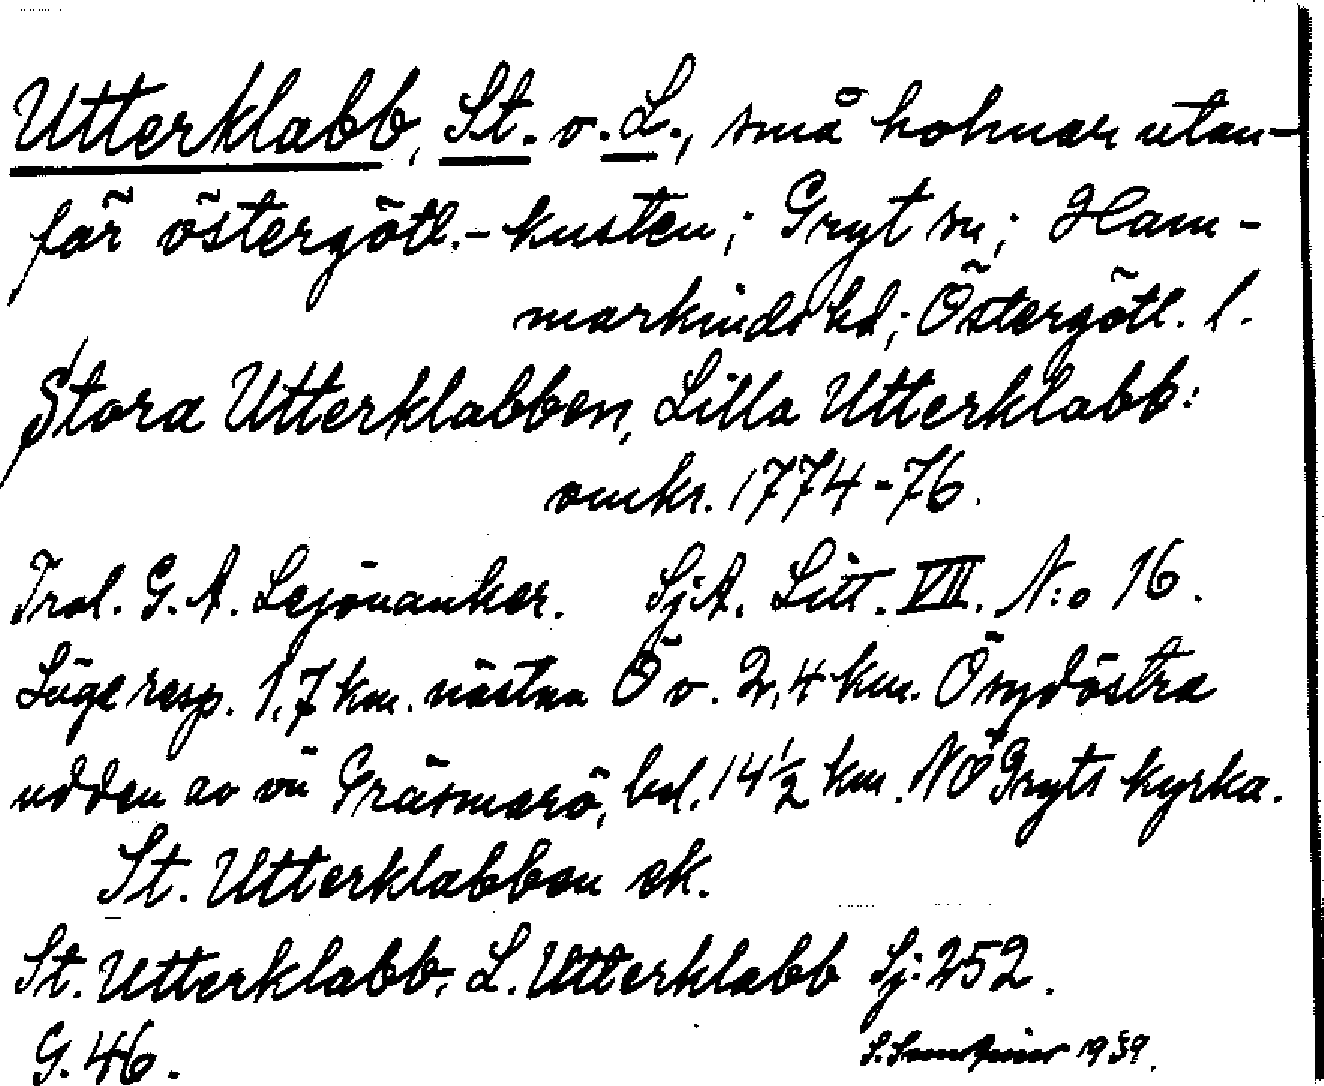 Utterklabb, St. o. L., små holmar utan-
för östergötl.-kusten; Gryt sn; Ham-
markinds hd; Östergötl. l.
Stora Utterklabben, Lilla Utterklabb:
omkr. 1774-76.
Trol. G. A. Lejonanker. SjA. Litt. VII. N:o 16.
Läge resp. 1,7 km. nästan Ö o. 2,4 km. Ö sydöstra
udden av ön Gräsmarö, bel. 14 1/2 km. NÖ Gryts kyrka.
St. Utterklabben ek.
St. Utterklabb, L. Utterklabb Sj: 252.
G. 46.
1939.